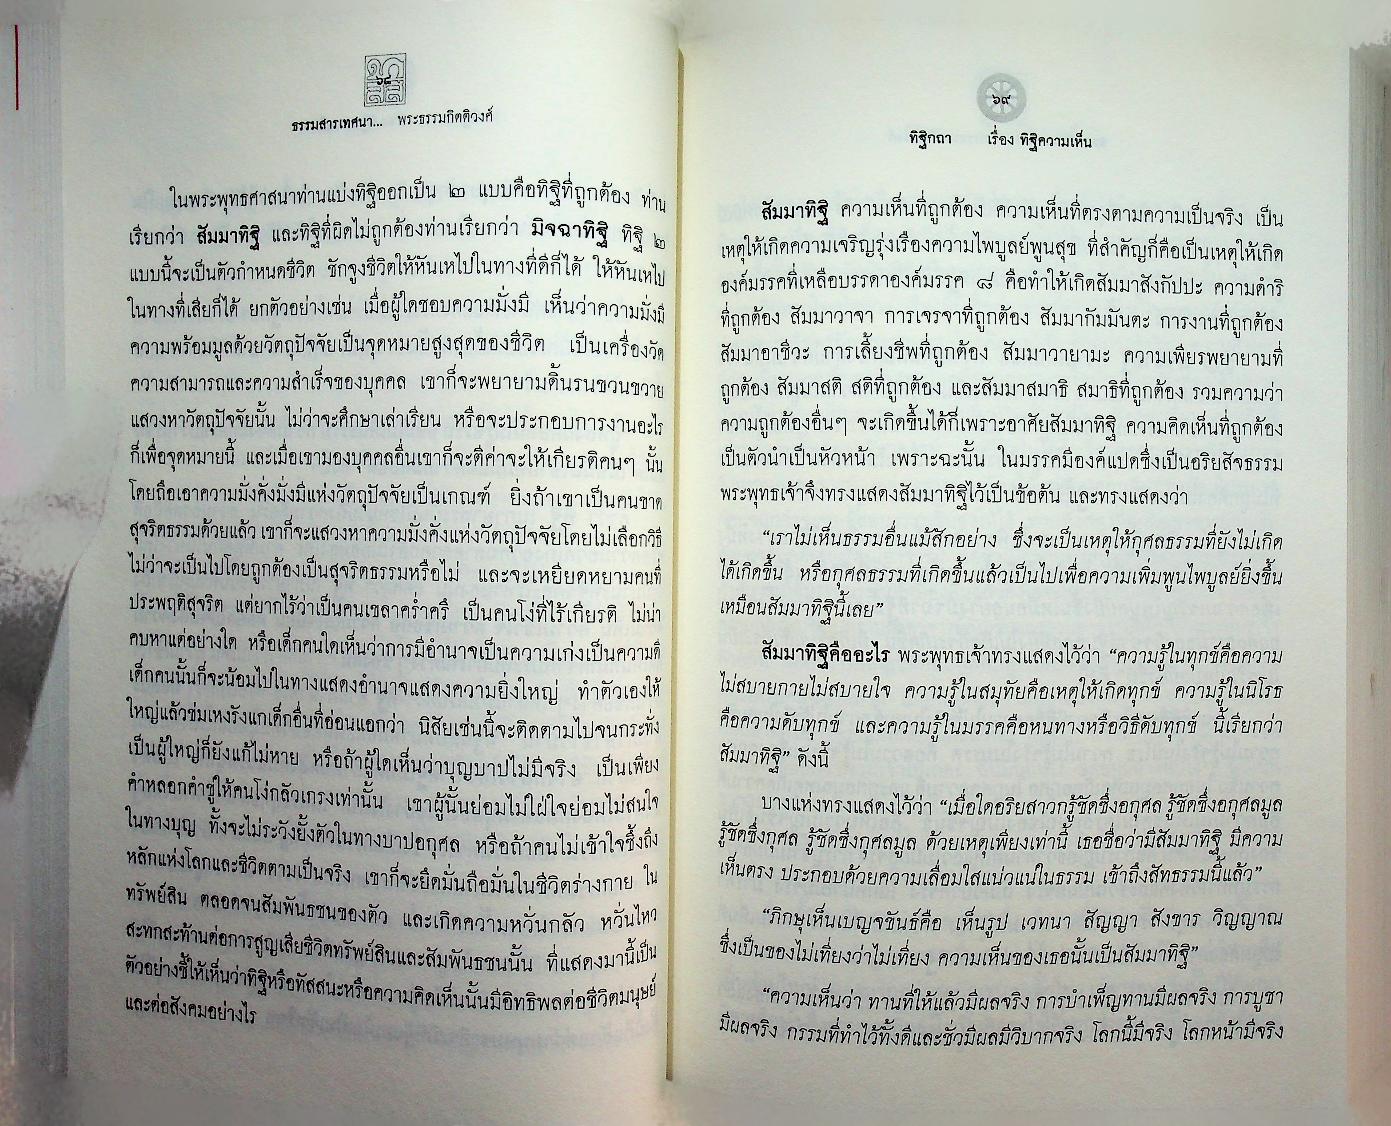 ๖๘
ธรรมสารเทศนา... พระธรรมกิตติวงศ์
ในพระพุทธศาสนาท่านแบ่งทิฐิออกเป็น ๒ แบบคือทิฐิที่ถูกต้อง ท่าน
เรียกว่า สัมมาทิฐิ และทิฐิที่ผิดไม่ถูกต้องท่านเรียกว่า มิจฉาทิฐิ ทิฐิ ๒
แบบนี้จะเป็นตัวกำหนดชีวิต ชักจูงชีวิตให้หันเหไปในทางที่ดีก็ได้ ให้หันเหไป
ในทางที่เสียก็ได้ ยกตัวอย่างเช่น เมื่อผู้ใดชอบความมั่งมี เห็นว่าความมั่งมี
ความพร้อมมูลด้วยวัตถุปัจจัยเป็นจุดหมายสูงสุดของชีวิต เป็นเครื่องวัด
ความสามารถและความสำเร็จของบุคคล เขาก็จะพยายามดิ้นรนขวนขวาย
แสวงหาวัตถุปัจจัยนั้น ไม่ว่าจะศึกษาเล่าเรียน หรือจะประกอบการงานอะไร
ก็เพื่อจุดหมายนี้ และเมื่อเขามองบุคคลอื่นเขาก็จะตีค่าจะให้เกียรติคนๆ นั้น
โดยถือเอาความมั่งคั่งมั่งมีแห่งวัตถุปัจจัยเป็นเกณฑ์ ยิ่งถ้าเขาเป็นคนขาด
สุจริตธรรมด้วยแล้ว เขาก็จะแสวงหาความมั่งคั่งแห่งวัตถุปัจจัยโดยไม่เลือกวิธี
ไม่ว่าจะเป็นไปโดยถูกต้องเป็นสุจริตธรรมหรือไม่ และจะเหยียดหยามคนที่
ประพฤติสุจริต แต่ยากไร้ว่าเป็นคนเขลาคร่ำครึ เป็นคนโง่ที่ไร้เกียรติ ไม่น่า
คบหาแต่อย่างใด หรือเด็กคนใดเห็นว่าการมีอำนาจเป็นความเก่งเป็นความดี
เด็กคนนั้นก็จะน้อมไปในทางแสดงอำนาจแสดงความยิ่งใหญ่ ทำตัวเองให้
ใหญ่แล้วข่มเหงรังแกเด็กอื่นที่อ่อนแอกว่า นิสัยเช่นนี้จะติดตามไปจนกระทั่ง
เป็นผู้ใหญ่ก็ยังแก้ไม่หาย หรือถ้าผู้ใดเห็นว่าบุญบาปไม่มีจริง เป็นเพียง
คำหลอกคำขู่ให้คนโง่กลัวเกรงเท่านั้น เขาผู้นั้นย่อมไม่ใฝ่ใจย่อมไม่สนใจ
ในทางบุญ ทั้งจะไม่ระวังยั้งตัวในทางบาปอกุศล หรือถ้าคนไม่เข้าใจซึ้งถึง
หลักแห่งโลกและชีวิตตามเป็นจริง เขาก็จะยึดมั่นถือมั่นในชีวิตร่างกาย ใน
ทรัพย์สิน ตลอดจนสัมพันธชนของตัว และเกิดความหวั่นกลัว หวั่นไหว
สะทกสะท้านต่อการสูญเสียชีวิตทรัพย์สินและสัมพันธชนนั้น ที่แสดงมานี้เป็น
ตัวอย่างชี้ให้เห็นว่าทิฐิหรือทัสสนะหรือความคิดเห็นนั้นมีอิทธิพลต่อชีวิตมนุษย์
และต่อสังคมอย่างไร
๖๙
ทิฐิกถา เรื่อง ทิฐิความเห็น
สัมมาทิฐิ ความเห็นที่ถูกต้อง ความเห็นที่ตรงตามความเป็นจริง เป็น
เหตุให้เกิดความเจริญรุ่งเรืองความไพบูลย์พูนสุข ที่สำคัญก็คือเป็นเหตุให้เกิด
องค์มรรคที่เหลือบรรดาองค์มรรค ๘ คือทำให้เกิดสัมมาสังกัปปะ ความดำริ
ที่ถูกต้อง สัมมาวาจา การเจรจาที่ถูกต้อง สัมมากัมมันตะ การงานที่ถูกต้อง
สัมมาอาชีวะ การเลี้ยงชีพที่ถูกต้อง สัมมาวายามะ ความเพียรพยายามที่
ถูกต้อง สัมมาสติ สติที่ถูกต้อง และสัมมาสมาธิ สมาธิที่ถูกต้อง รวมความว่า
ความถูกต้องอื่นๆ จะเกิดขึ้นได้ก็เพราะอาศัยสัมมาทิฐิ ความคิดเห็นที่ถูกต้อง
เป็นตัวนำเป็นหัวหน้า เพราะฉะนั้น ในมรรคมีองค์แปดซึ่งเป็นอริยสัจธรรม
พระพุทธเจ้าจึงทรงแสดงสัมมาทิฐิไว้เป็นข้อต้น และทรงแสดงว่า
“เราไม่เห็นธรรมอื่นแม้สักอย่าง ซึ่งจะเป็นเหตุให้กุศลธรรมที่ยังไม่เกิด
ได้เกิดขึ้น หรือกุศลธรรมที่เกิดขึ้นแล้วเป็นไปเพื่อความเพิ่มพูนไพบูลย์ยิ่งขึ้น
เหมือนสัมมาทิฐินี้เลย”
สัมมาทิฐิคืออะไร พระพุทธเจ้าทรงแสดงไว้ว่า “ความรู้ในทุกข์คือความ
ไม่สบายกายไม่สบายใจ ความรู้ในสมุทัยคือเหตุให้เกิดทุกข์ ความรู้ในนิโรธ
คือความดับทุกข์ และความรู้ในมรรคคือหนทางหรือวิธีดับทุกข์ นี้เรียกว่า
สัมมาทิฐิ” ดังนี้
บางแห่งทรงแสดงไว้ว่า “เมื่อใดอริยสาวกรู้ชัดซึ่งอกุศล รู้ชัดซึ่งอกุศลมูล
รู้ชัดซึ่งกุศล รู้ชัดซึ่งกุศลมูล ด้วยเหตุเพียงเท่านี้ เธอชื่อว่ามีสัมมาทิฐิ มีความ
เห็นตรง ประกอบด้วยความเลื่อมใสแน่วแน่ในธรรม เข้าถึงสัทธรรมนี้แล้ว”
“ภิกษุเห็นเบญจขันธ์คือ เห็นรูป เวทนา สัญญา สังขาร วิญญาณ
ซึ่งเป็นของไม่เที่ยงว่าไม่เที่ยง ความเห็นของเธอนั้นเป็นสัมมาทิฐิ”
“ความเห็นว่า ทานที่ให้แล้วมีผลจริง การบำเพ็ญทานมีผลจริง การบูชา
มีผลจริง กรรมที่ทำไว้ทั้งดีและชั่วมีผลมีวิบากจริง โลกนี้มีจริง โลกหน้ามีจริง